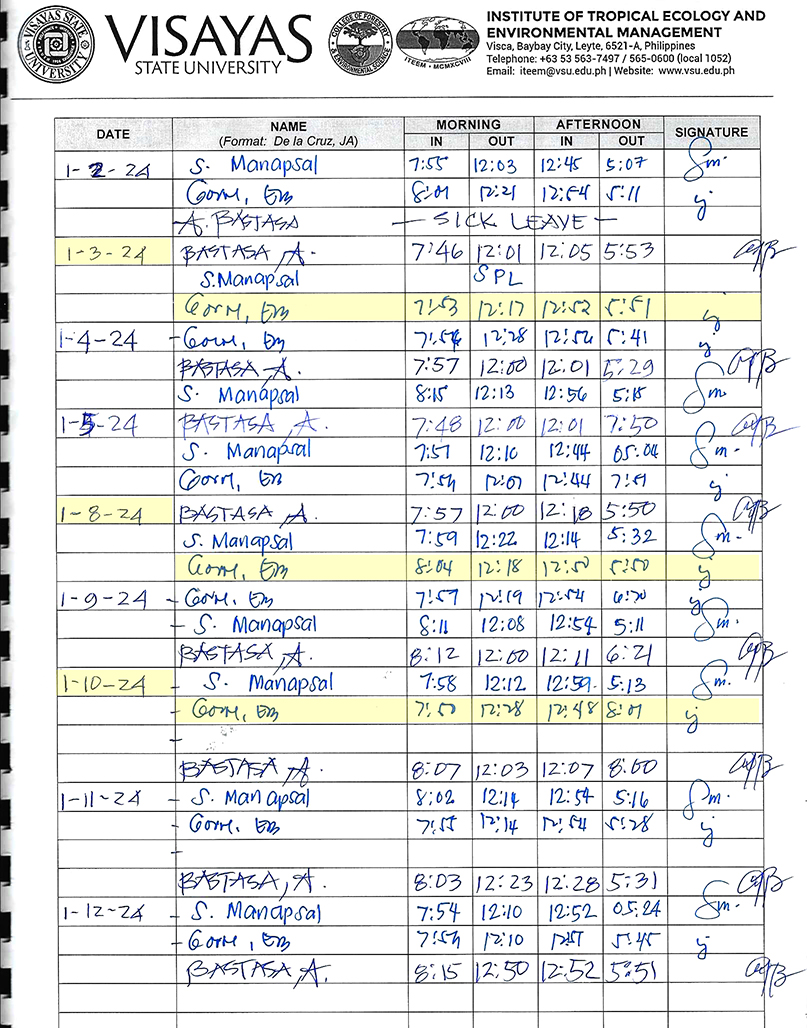 VISAYAS STATE UNIVERSITY
VISAYAS
STATE UNIVERSITY
COLLEGE OF FORESTRY
ITEEM - MCMXCVIII
INSTITUTE OF TROPICAL ECOLOGY AND
ENVIRONMENTAL MANAGEMENT
Visca, Baybay City, Leyte, 6521-A, Philippines
Telephone: +63 53 563-7497 / 565-0600 (local 1052)
Email: iteem@vsu.edu.ph | Website: www.vsu.edu.ph
DATE NAME MORNING AFTERNOON SIGNATURE
(Format: De la Cruz, JA) IN OUT IN OUT
1-2-24 S. Manapsal 7:55 12:03 12:45 5:07 Sm.
8:01 12:21 12:54 5:11
A. BASTASA — SICK LEAVE —
1-3-24 BASTASA, A. 7:46 12:01 12:05 5:53
S. Manapsal SPL
7:53 12:17 12:52 5:51
1-4-24 - 12:28 5:41
BASTASA, A. 7:57 12:00 12:01 5:29
S. Manapsal 8:15 12:13 12:56 5:15 Sm.
1-5-24 BASTASA, A. 7:48 12:00 12:01 7:50
S. Manapsal 7:57 12:10 12:44 05:04 Sm.
12:07 12:44
1-8-24 BASTASA, A. 7:57 12:00 12:18 5:50
S. Manapsal 7:59 12:22 12:14 5:32 Sm.
8:04 12:18 12:50 5:50
1-9-24 - 12:19 12:54
- S. Manapsal 8:11 12:08 12:54 5:11 Sm.
BASTASA, A. 8:12 12:00 12:11 6:21
1-10-24 - S. Manapsal 7:58 12:12 12:59 5:13 Sm.
- 7:50 12:28 12:48 8:01
-
BASTASA, A. 8:07 12:03 12:07 8:00
1-11-24 - S. Manapsal 8:02 12:14 12:54 5:16 Sm.
- 7:55 12:14 12:54 5:28
-
BASTASA, A. 8:03 12:23 12:28 5:31
1-12-24 - S. Manapsal 7:54 12:10 12:52 05:24 Sm.
- 12:10 5:45
BASTASA, A. 8:15 12:50 12:52 5:51